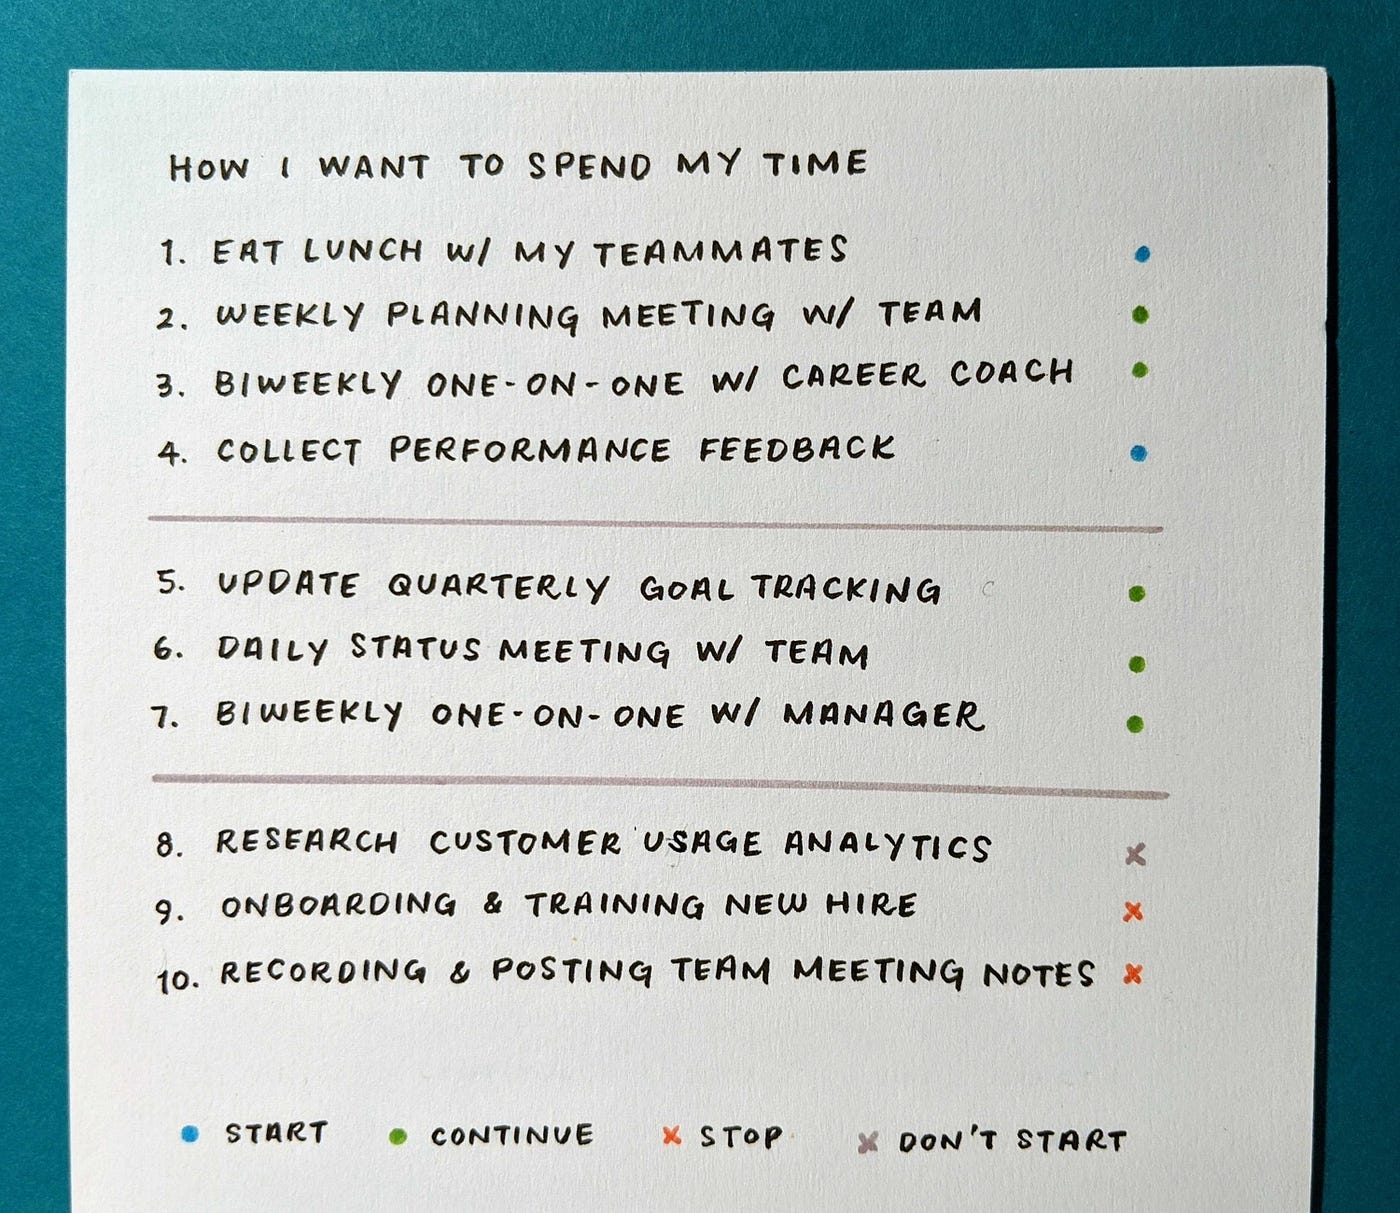 HOW I WANT TO SPEND MY TIME
1. EAT LUNCH W/ MY TEAMMATES
2. WEEKLY PLANNING MEETING W/ TEAM
3. BIWEEKLY ONE-ON-ONE W/ CAREER COACH
4. COLLECT PERFORMANCE FEEDBACK
5. UPDATE QUARTERLY GOAL TRACKING
6. DAILY STATUS MEETING W/ TEAM
7. BIWEEKLY ONE-ON-ONE W/ MANAGER
8. RESEARCH CUSTOMER USAGE ANALYTICS
9. ONBOARDING & TRAINING NEW HIRE
10. RECORDING & POSTING TEAM MEETING NOTES
START CONTINUE STOP DON'T START